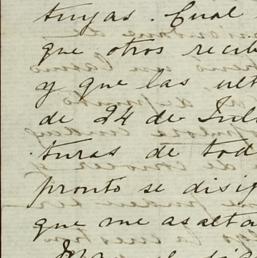 tuyas. Cual
que otros recib
y que las ult
de 24 de Jul
turas de tod
pronto se disi
que me asalta